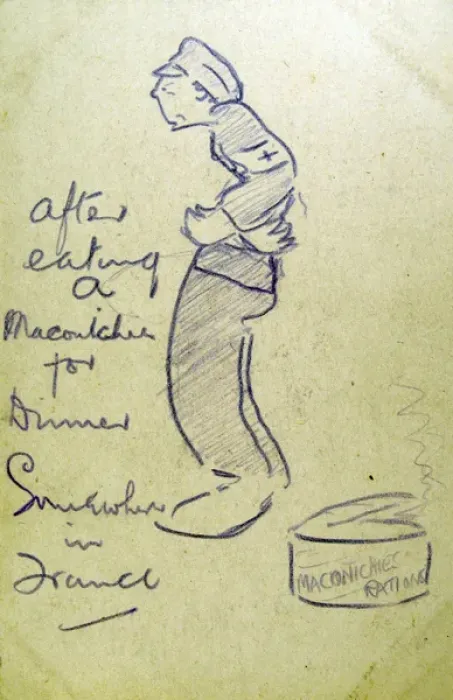 after
eating
a
Maconichie
for
Dinner
Somewhere
in
France
MACONICHIES
RATIONS